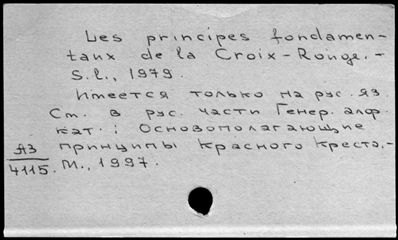 Les principes fondamen-
taux de la Croix-Rouge.-
S.l., 1979.
Имеется только на рус. яз.
См. в рус. части Генер. алф.
кат.: Основополагающие
принципы Красного Креста.-
М., 1997.
ЯЗ
4115.